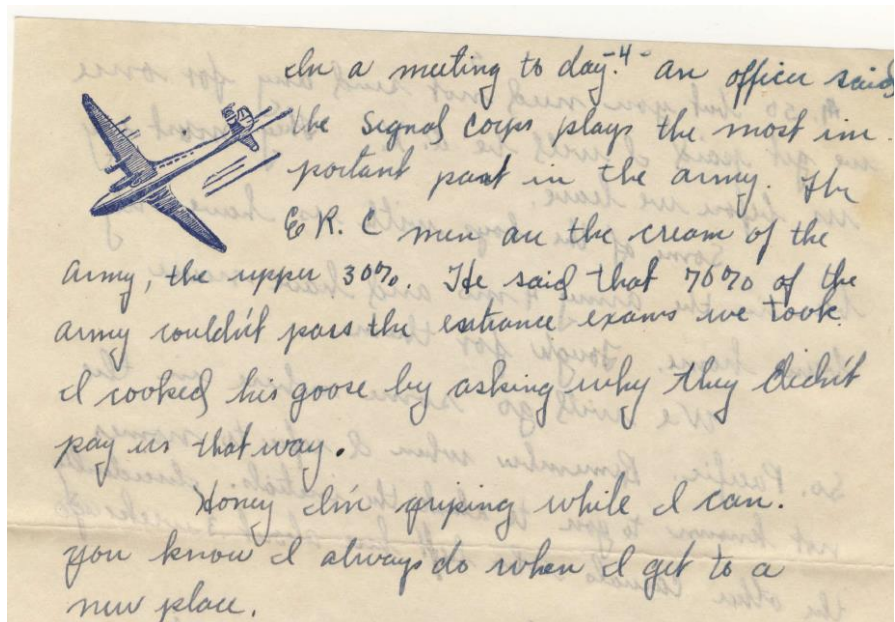 In a meeting to day -4- an officer said
the Signal Corps plays the most im-
portant part in the army. The
E.R.C men are the cream of the
army, the upper 30%. He said that 70% of the
army couldn't pass the entrance exams we took.
I cooked his goose by asking why they didn't
pay us that way.
Honey I'm griping while I can.
you know I always do when I get to a
new place.